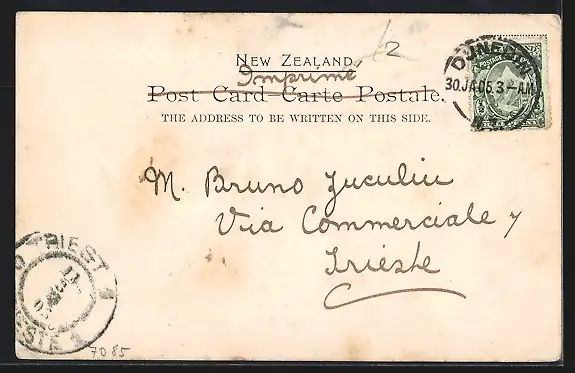 2
NEW ZEALAND,
Imprimé
Post Card-Carte Postale.
THE ADDRESS TO BE WRITTEN ON THIS SIDE.
DUNEDIN
30 JA 05 3-AM
POSTAGE
M. Bruno Zuculin
Via Commerciale 7
Trieste
TRIEST 1
TRIESTE 1
7085